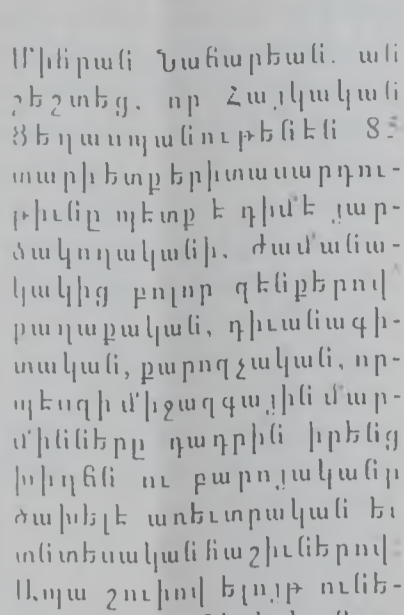 Միհրան Նաճարեան. ան
շեշտեց, որ Հայկական
Ցեղասպանութենէն 85
տարի ետք երիտասարդու-
թիւնը պետք է դիմէ յար-
ձակողականի, ժամանա-
կակից բոլոր զէնքերով՝
քաղաքական, դիւանագի-
տական, քարոզչական, որ-
պէսզի միջազգային մար-
մինները դադրին իրենց
խիղճն ու բարոյականը
ծախելէ առեւտրական եւ
տնտեսական հաշիւներով:
Ապա շուիով ելոյթ ունե-